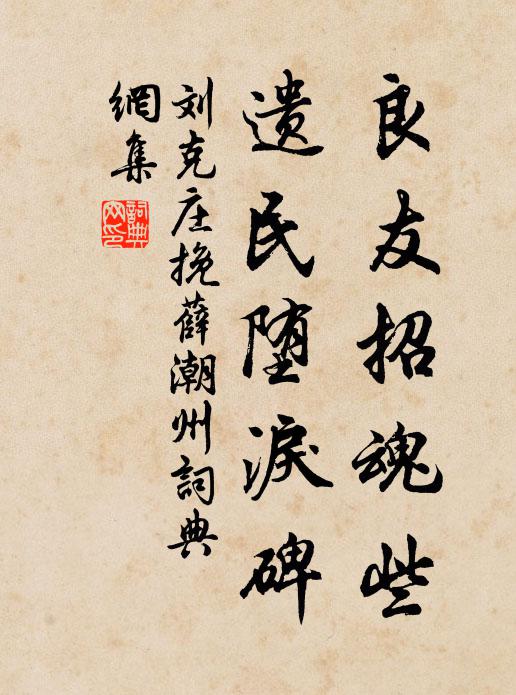 良友招魂些
遗民堕淚碑
刘克庄挽薛潮州詞典
網集
詞典網印